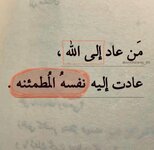 مَن عاد إلى الله ،
عادت إليه نفسهُ المُطمئنه .